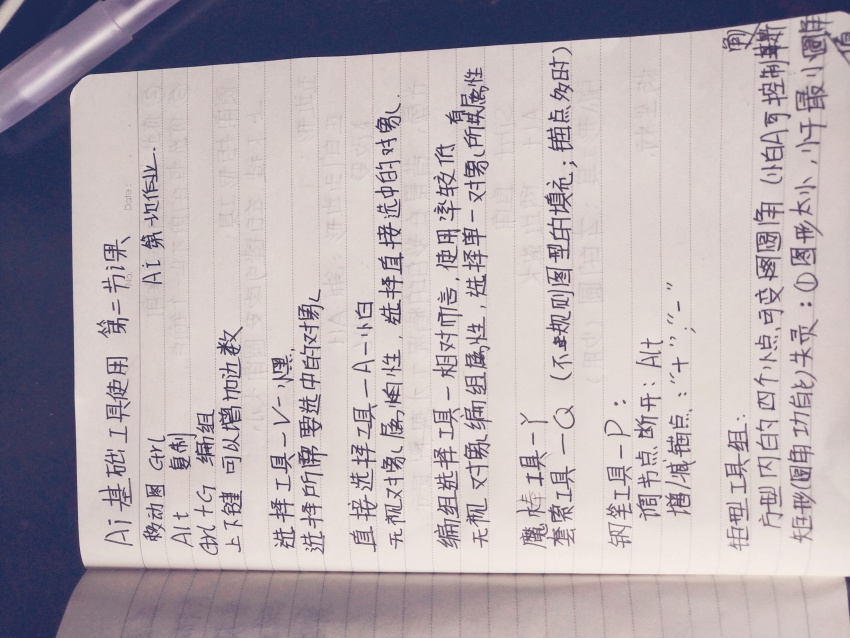 Date:
No.
Ai 基础工具使用 第二节课
移动图 Ctrl Ai 第一次作业.
Alt 复制
Ctrl+G 编组
上下键 可以增加边数
选择工具-V-小黑
选择所需要选中的对象
直接选择工具-A-小白
无视对象属性,选择直接选中的对象.
编组选择工具-相对而言,使用率较低
无视对象编组属性,选择单一对象所有属性
魔棒工具-Y
套索工具-Q (不规则图型的填充;锚点多时)
钢笔工具-P:
调节点断开:Alt
增/减锚点:"+";"-"
矩型工具组:
方型内的四个小点,可变圆角 (小白A可控制单
矩形(圆角功能)失灵:①图形太小,小于最小圆角
值